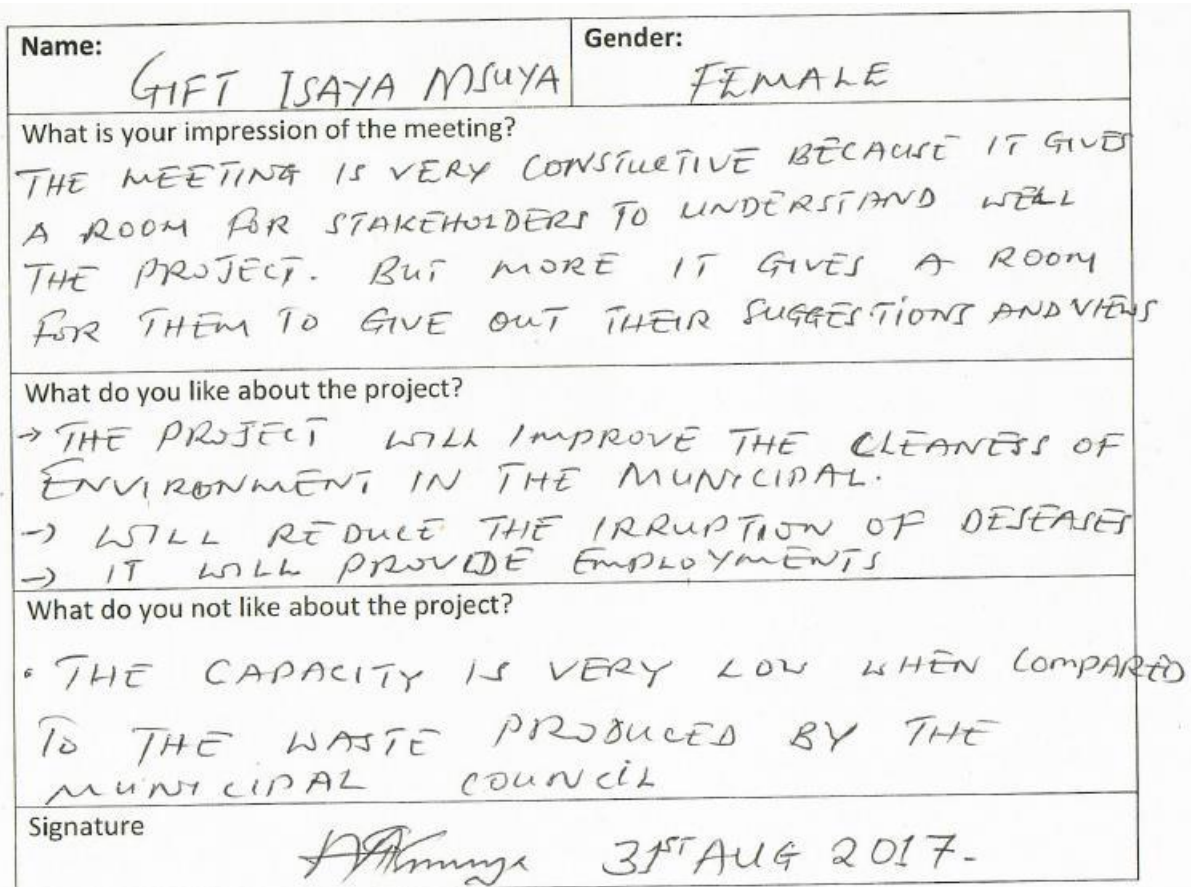 Name: Gender:
GIFT ISAYA MSUYA FEMALE
What is your impression of the meeting?
THE MEETING IS VERY CONSTUCTIVE BECAUSE IT GIVES
A ROOM FOR STAKEHOLDERS TO UNDERSTAND WELL
THE PROJECT. BUT MORE IT GIVES A ROOM
FOR THEM TO GIVE OUT THEIR SUGGESTIONS AND VIEWS
What do you like about the project?
→ THE PROJECT WILL IMPROVE THE CLEANESS OF
ENVIRONMENT IN THE MUNICIPAL.
→ WILL REDUCE THE IRRUPTION OF DESEASES
→ IT WILL PROVIDE EMPLOYMENTS
What do you not like about the project?
• THE CAPACITY IS VERY LOW WHEN COMPARED
TO THE WASTE PRODUCED BY THE
MUNICIPAL COUNCIL
Signature
31ST AUG 2017-